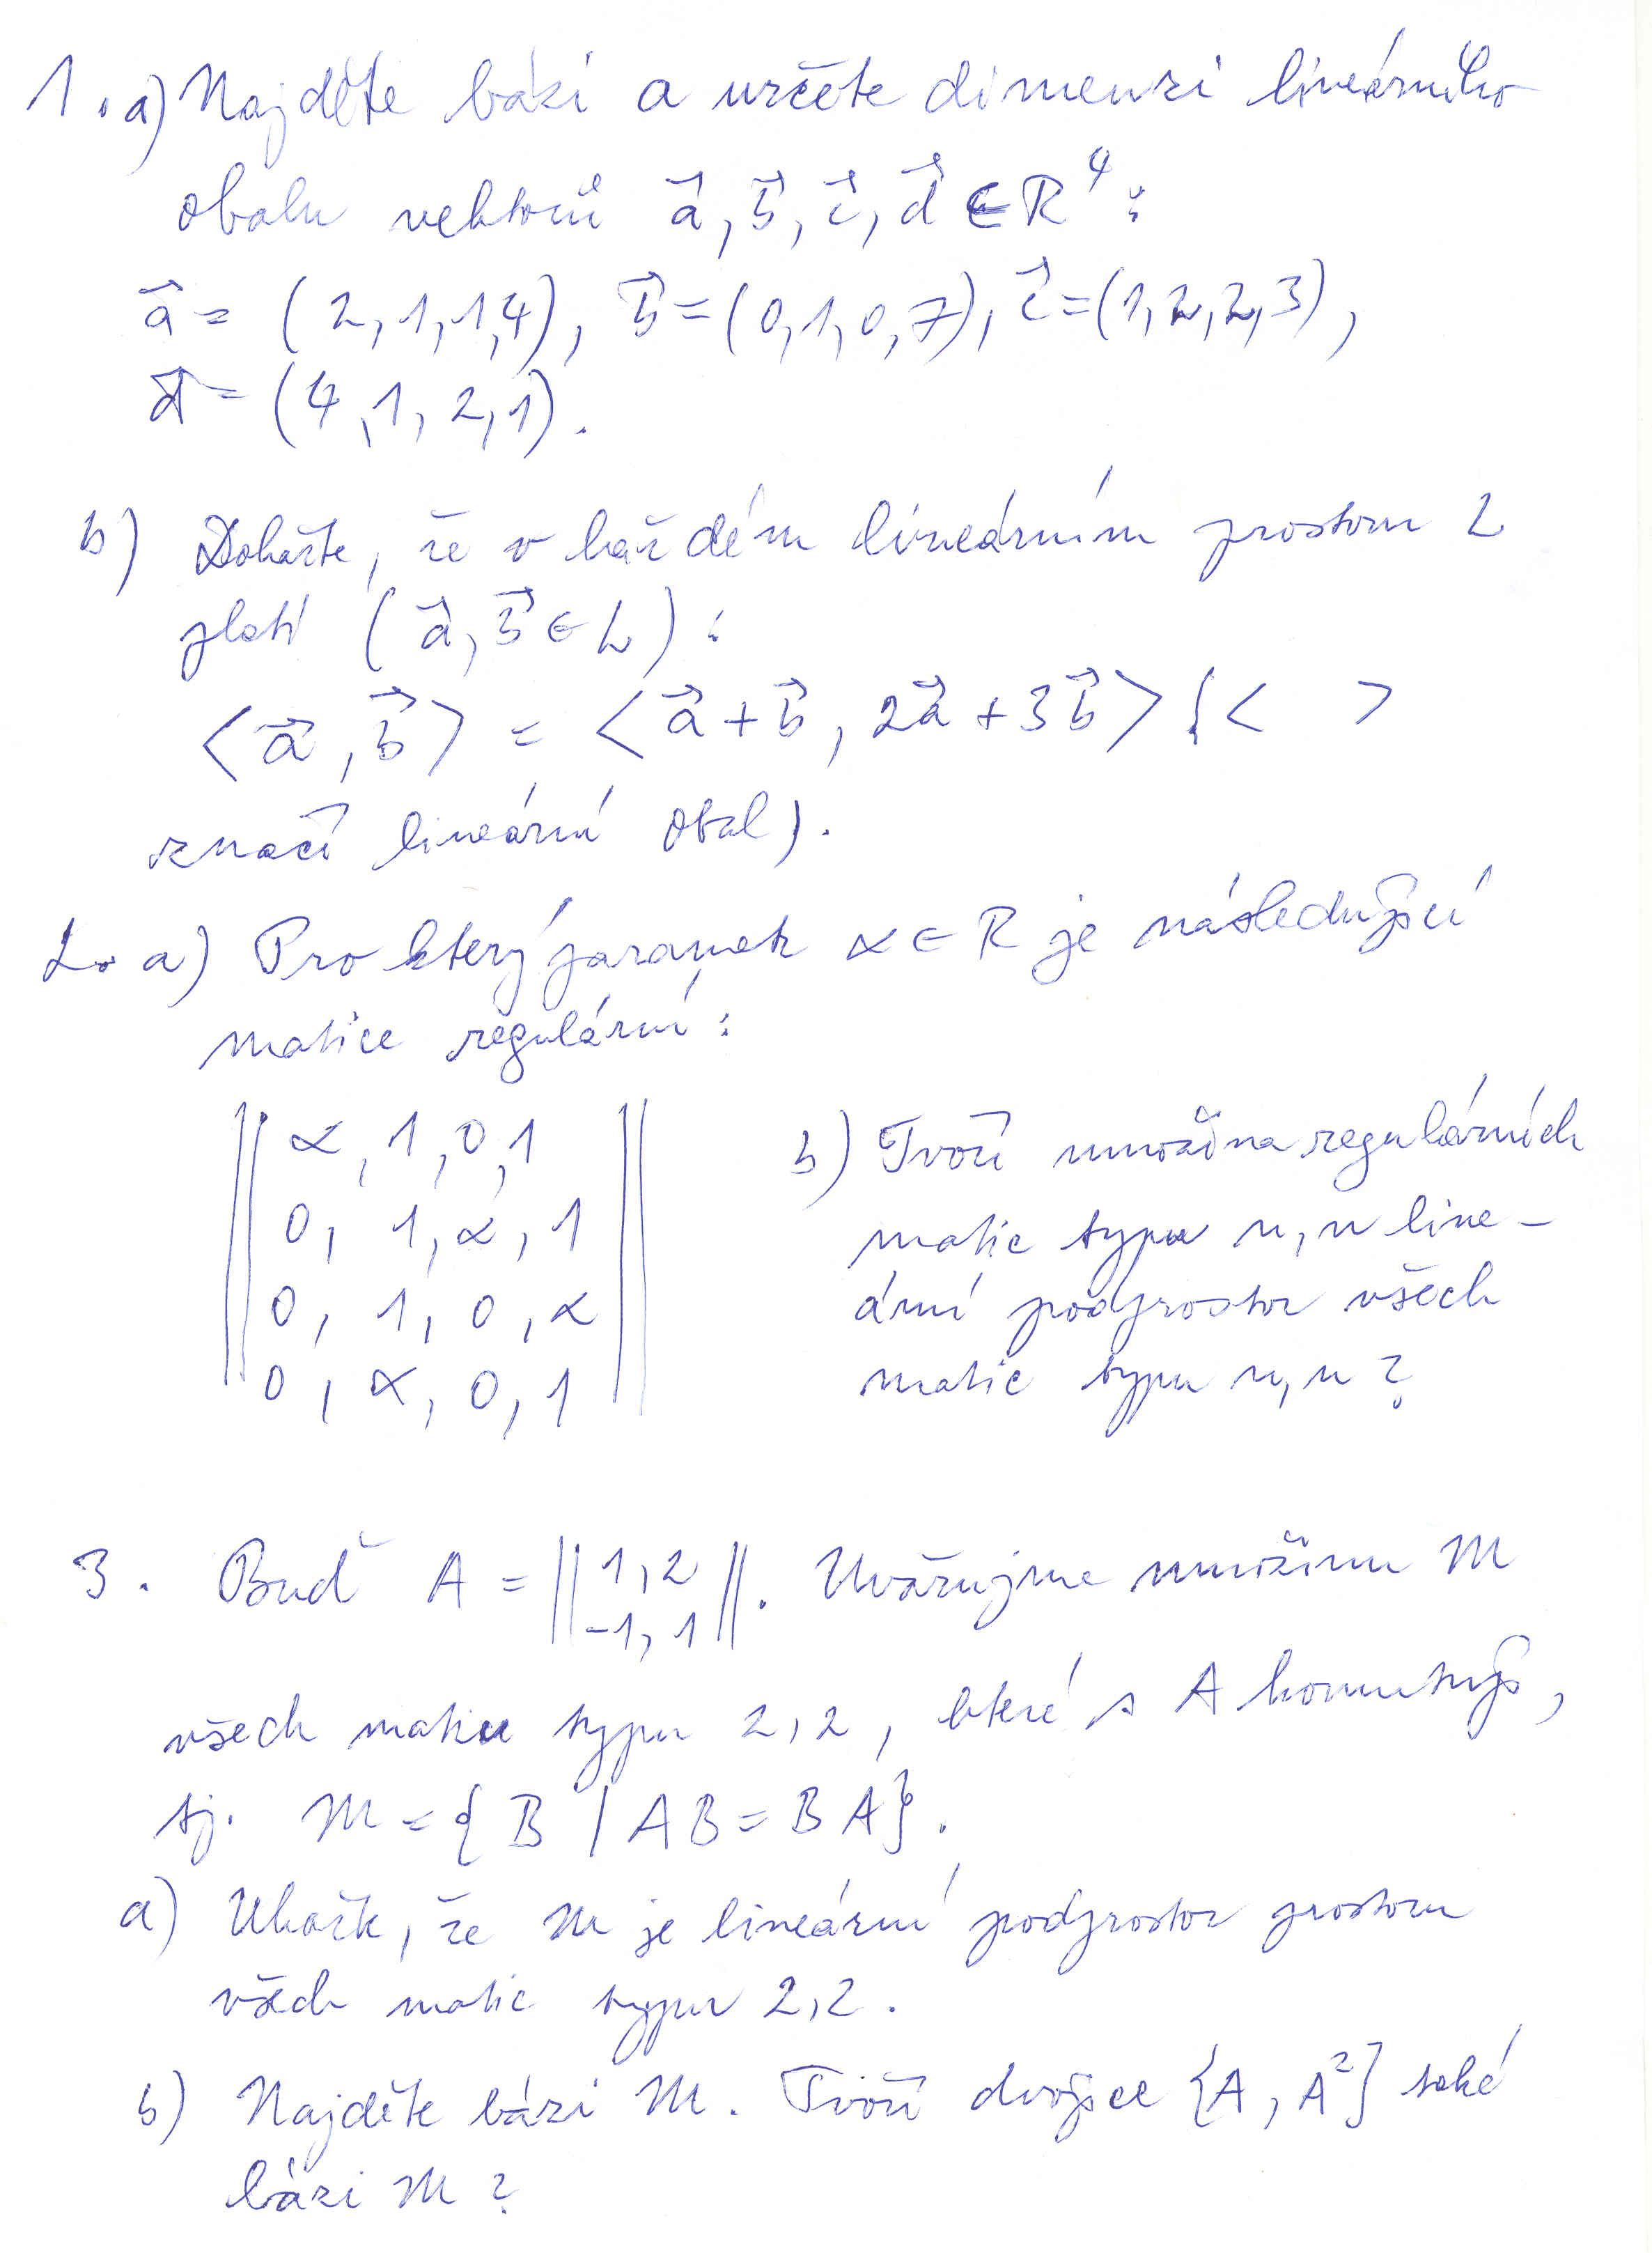 1. a) Najděte bázi a určete dimenzi lineárního
obalu vektorů a⃗, b⃗, c⃗, d⃗ ∈ R⁴:
a⃗ = (2,1,1,4), b⃗ = (0,1,0,7), c⃗ = (1,2,2,3),
d⃗ = (4,1,2,1).
b) Dokažte, že v každém lineárním prostoru L
platí (a⃗, b⃗ ∈ L):
<a⃗, b⃗> = <a⃗ + b⃗, 2a⃗ + 3b⃗> (< >
značí lineární obal).
2. a) Pro který parametr α ∈ R je následující
matice regulární:
α, 1, 0, 1
0, 1, α, 1
0, 1, 0, α
0, α, 0, 1
b) Tvoří množina regulárních
matic typu n,n line-
ární podprostor všech
matic typu n,n?
3. Buď A = ‖ 1, 2 ‖. Uvažujme množinu M
-1, 1
všech matic typu 2,2, které s A komutují,
tj. M = {B | AB = BA}.
a) Ukažte, že M je lineární podprostor prostoru
všech matic typu 2,2.
b) Najděte bázi M. Tvoří dvojice {A, A²} také
bázi M?